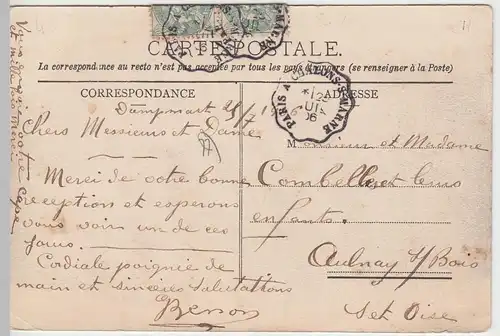 CARTE POSTALE.
La correspondance au recto n'est pas acceptée par tous les pays étrangers (se renseigner à la Poste)
CORRESPONDANCE
Dampmart
Chers Messieurs et Dame
Merci de votre bonne
reception et esperons
vous voir un de ces
jours.
Cordiale poignée de
main et sincères salutations
Benon
ADRESSE
PARIS A CHALONS-S-MARNE
06
Monsieur et Madame
et leurs
enfants.
Aulnay s/ Bois
Set Oise